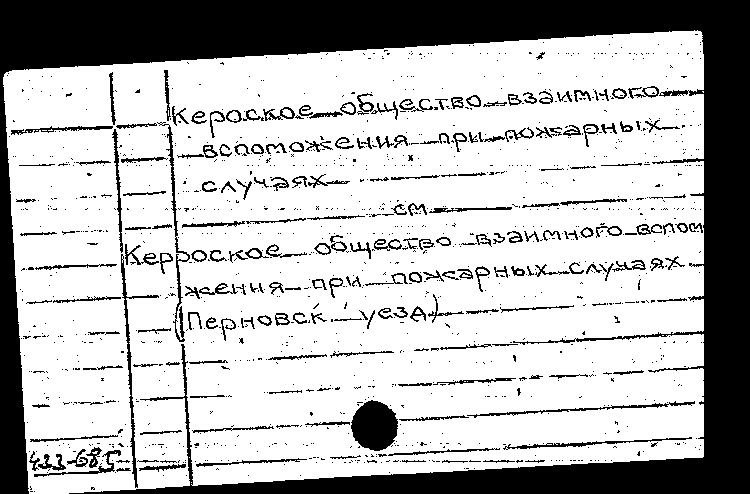 Кероское общество взаимного
вспоможения при пожарных
случаях
см
Керроское общество взаимного вспом
жения при пожарных случаях
(Перновск уезд)
433-68.5